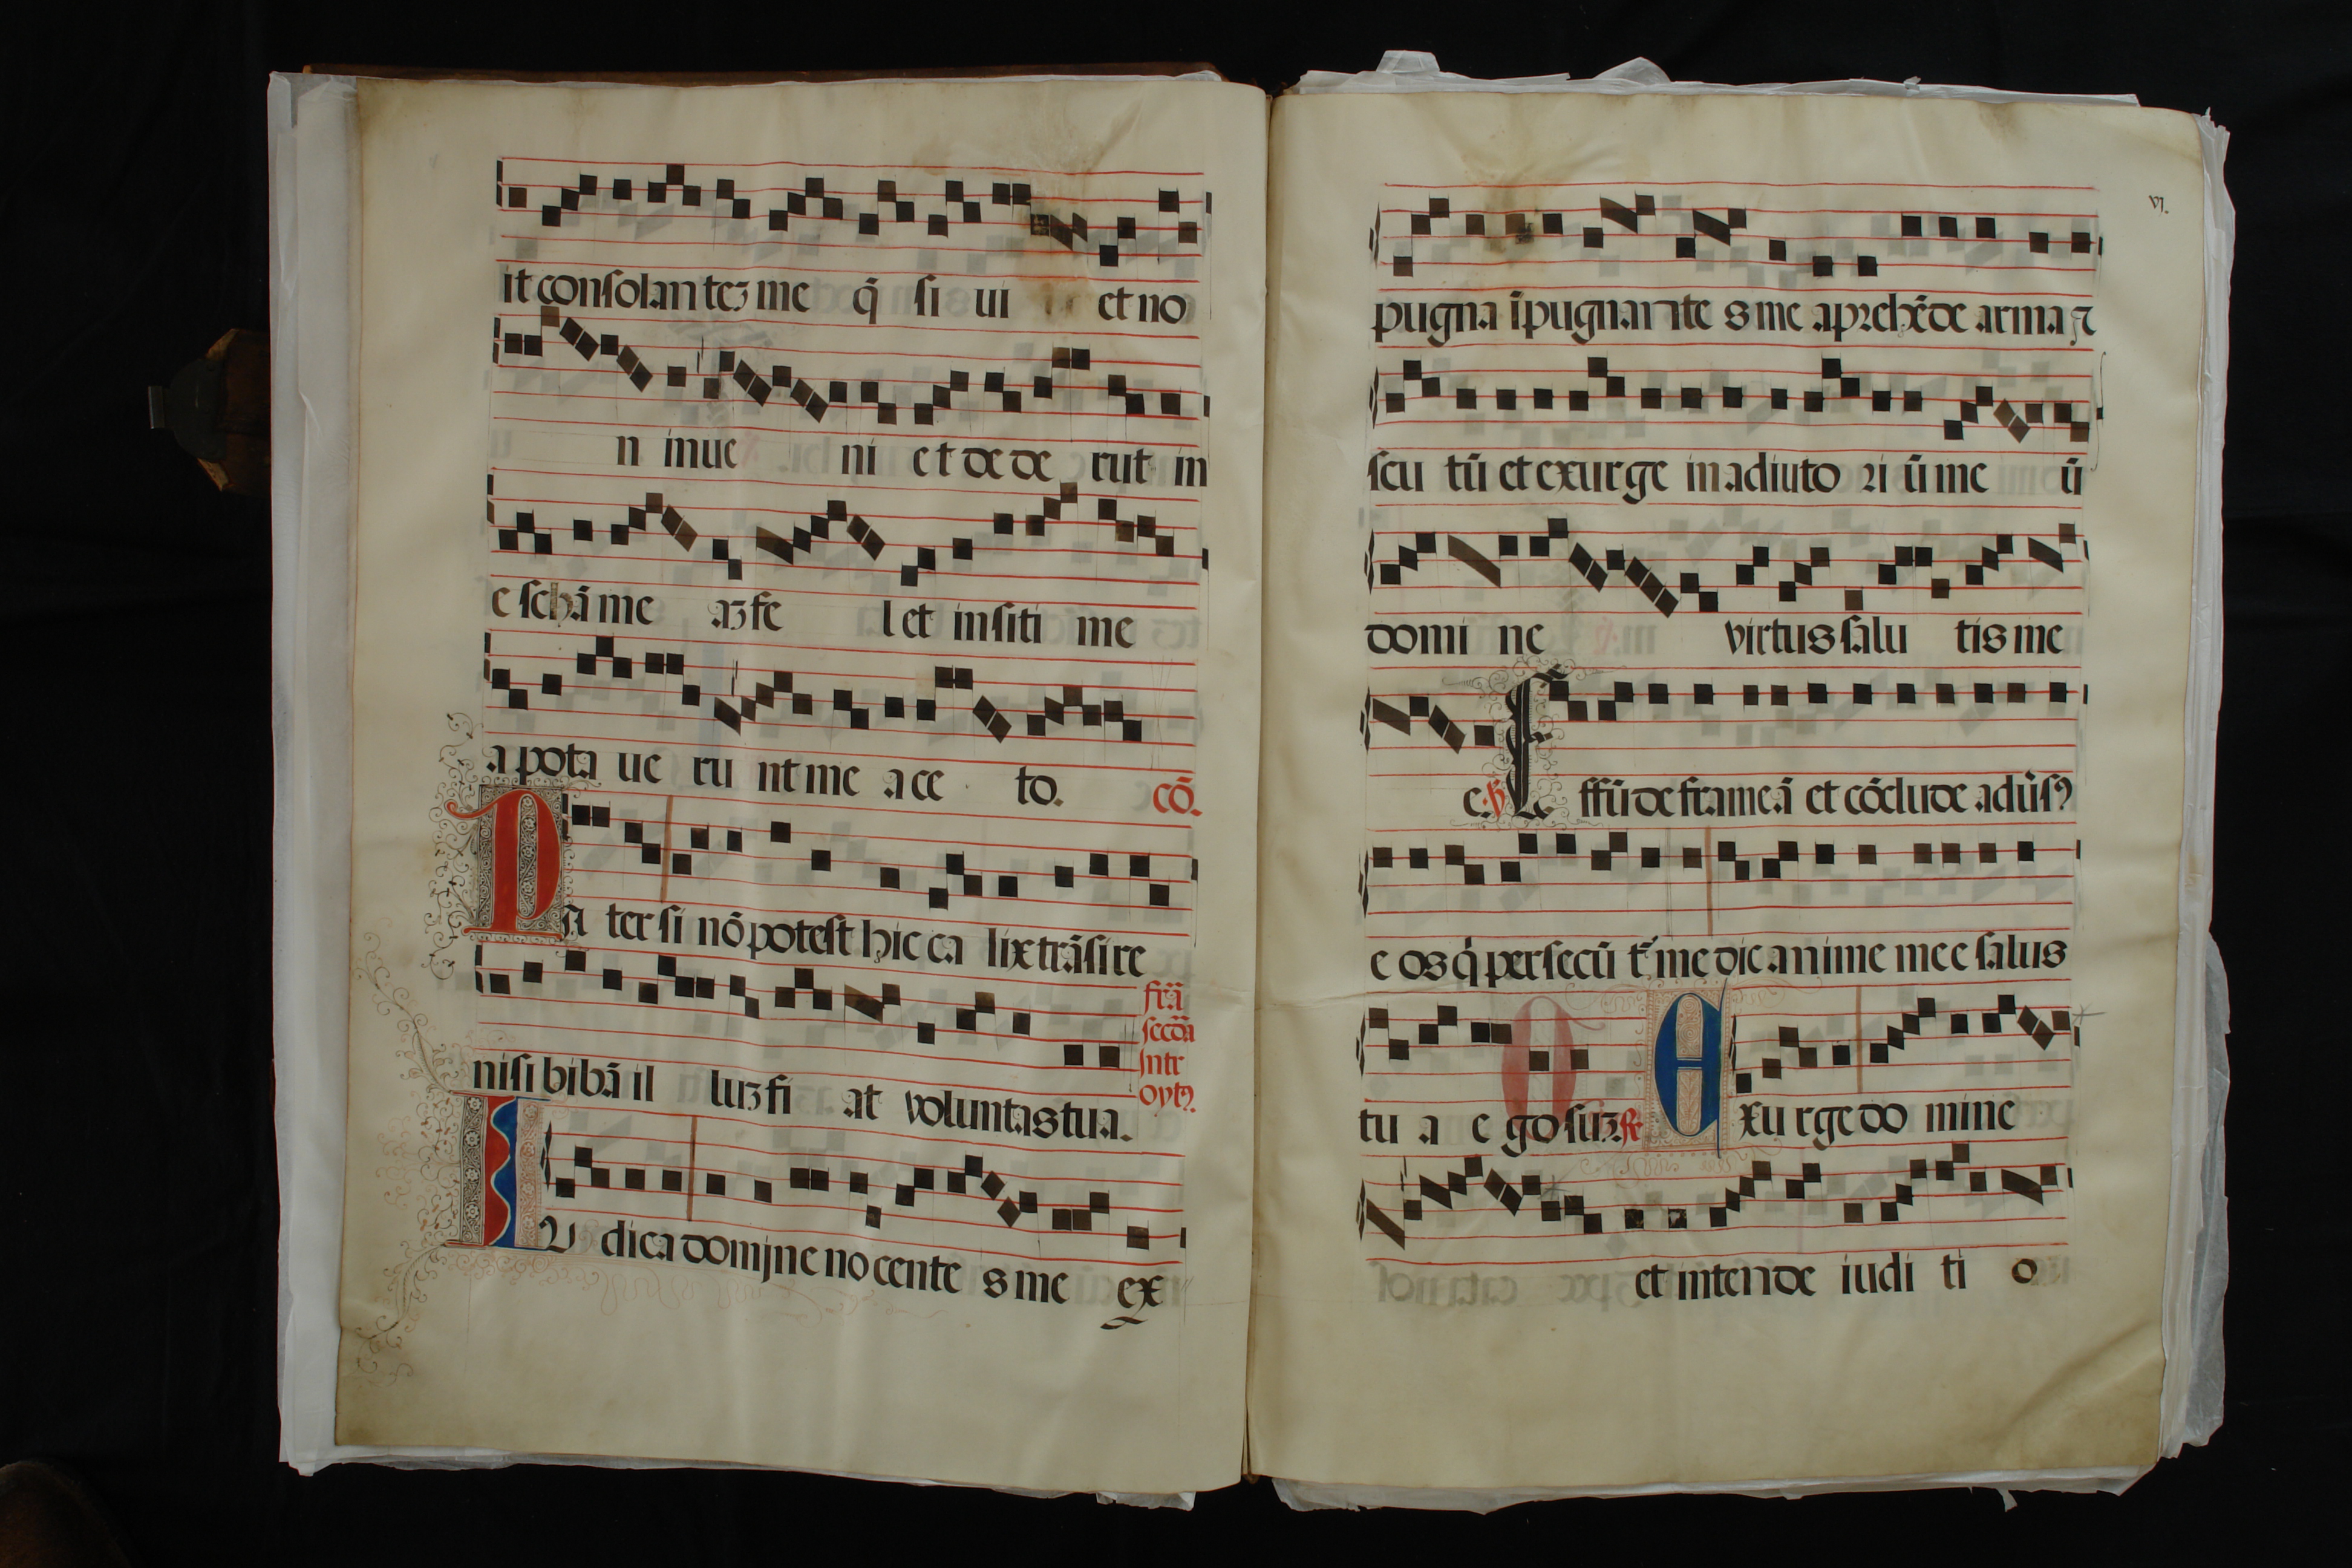 it consolantez me q̄ si ui et no
n inue ni et dede rūt in
e schā me az fe l et in siti me
a pota ue ru nt me ace to. cō.
Pa ter si nō potest hic ca lix trāsire
nisi bibā il luz fi at voluntas tua.
frā secōa Intr oytꝰ.
IU dica domjne nocente s me ex
vj.
pugna īpugnante s me aprehēde arma ⁊
scu tū et exurge in adiuto ri ū me ū
domi ne virtus salu tis me
e. Effūde frameā et cōclude adūsꝰ
e os q̇ persecū t᷑ me dic anime mee salus
tu a e go suz. Exu rge do mine
et intende iudi ti o